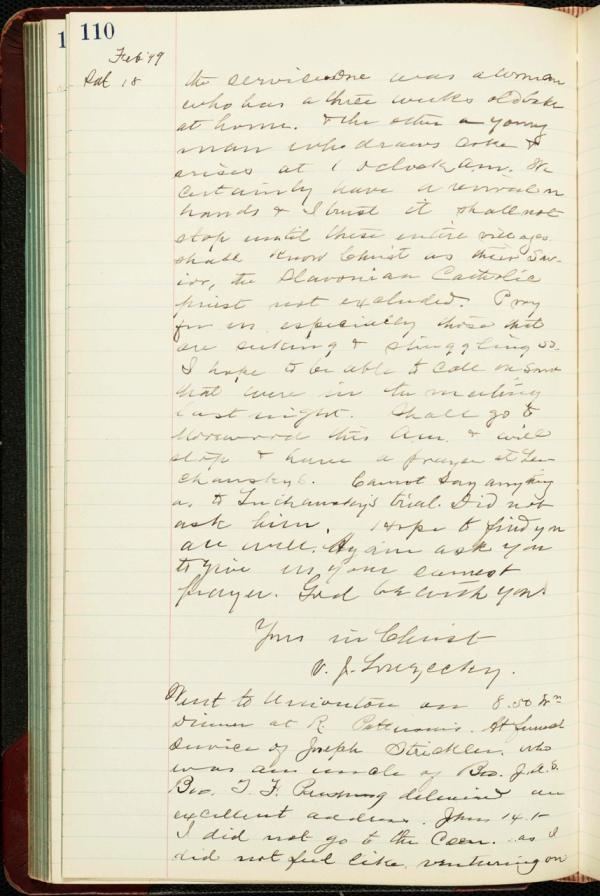 110
1
Feb '99
Sat 18
the service. One was a woman
who has a three weeks old babe
at home. & the other a young
man who draws coke &
arises at 1 o'clock A.M. We
certainly have a revival on
hands & I trust it shall not
stop until these entire villages
shall know Christ as their Sav-
ior, the Slavonian Catholic
priest not excluded. Pray
for us especially those that
are seeking & struggling so.
I hope to be able to call on some
that were in the meeting
last night. Shall go to
Morewood this A.M. & will
stop & have a prayer at
Cannot say anything
as to trial. Did not
ask him. Hope to find you
all well. Again ask you
to give us your earnest
prayer. God be with you.
Yours in Christ
V. J.
Went to Uniontown on 8.50 Trn
Dinner at R. At funeral
service of Joseph Strickler. who
was an uncle of Bro. J. A. S.
Bro. delivered an
excellent address. John 14.1-
I did not go to the Cem. as I
did not feel like venturing on